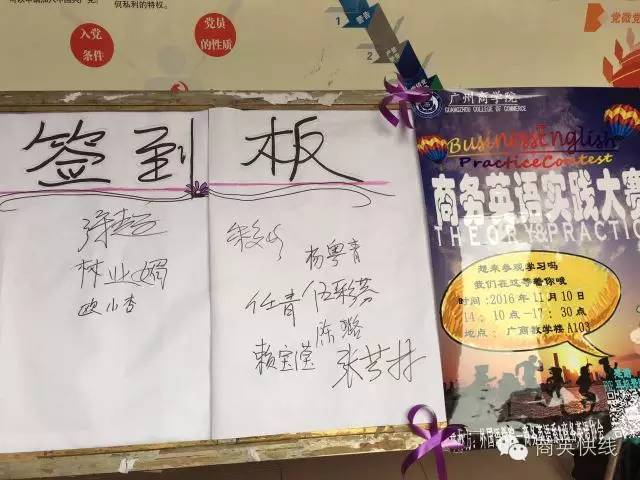 何私利的特权。
入党
条件
党员
的性质
1
警告
2
党徽党
签到板
林业媚
欧小杏
杨粤青
任青
伍彩芬
陈璐
赖宝莹
广州商学院
GUANGZHOU COLLEGE OF COMMERCE
Business English
Practice Contest
商务英语实践大赛
THEORY&PRACTIC
想来参观学习吗
我们在这等着你哦
时间:2016年11月10日
14:10点-17:30点
地点: 广商教学楼A103
商英快线